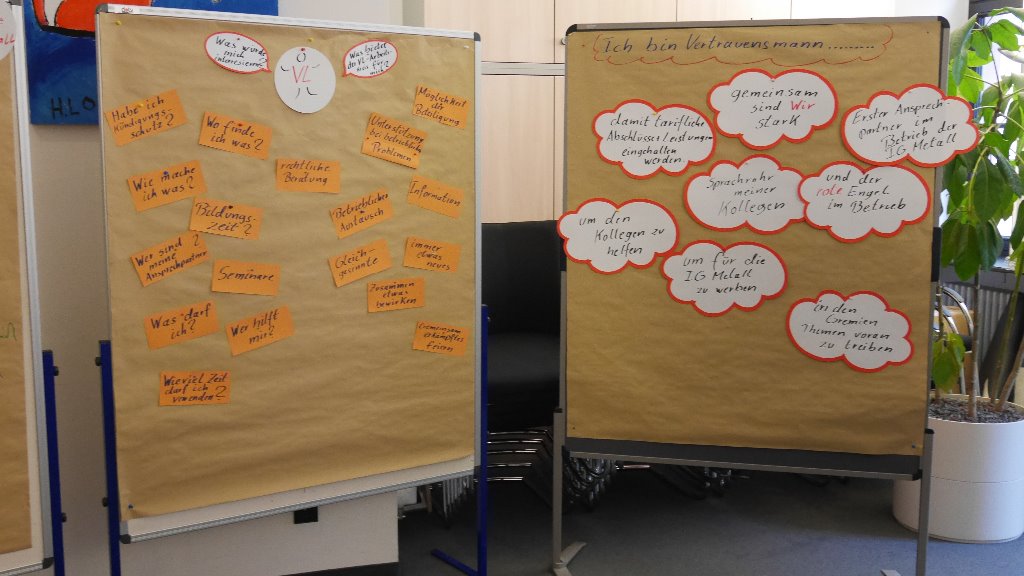 Was würde
mich
interessieren?
VL
Was bietet
die VL-Arbeit
mir für
mich?
Habe ich
Kündigungs-
schutz?
Wo finde
ich was?
Wie mache
ich was?
Bildungs-
zeit?
Wer sind
meine
Ansprechpartner
Seminare
Was darf
ich?
Wer hilft
mir?
Wieviel Zeit
darf ich
verwenden?
rechtliche
Beratung
Möglichkeit
der
Beteiligung
Unterstützung
bei betrieblichen
Problemen
Information
Betrieblicher
Austausch
Gleich-
gesinnte
immer
etwas
neues
Zusammen
etwas
bewirken
Gemeinsam
erkämpftes
feiern
H.LO
Ich bin Vertrauensmann.........
gemeinsam
sind Wir
stark
damit tarifliche
Abschlüsse/Leistungen
eingehalten
werden
Erster Ansprech-
partner im
Betrieb der
IG Metall
Sprachrohr
meiner
Kollegen
und der
rote Engel
im Betrieb
um den
Kollegen zu
helfen
um für die
IG Metall
zu werben
in den
Gremien
Themen voran
zu treiben